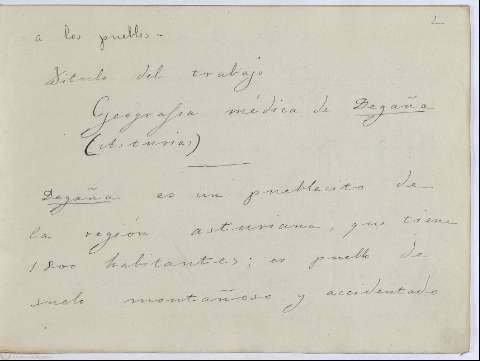 1
a los pueblos -
Titulo del trabajo
Geografia médica de Degaña
(Asturias)
Degaña es un pueblecito de
la región asturiana, que tiene
1800 habitantes; es pueblo de
suelo montañoso y accidentado